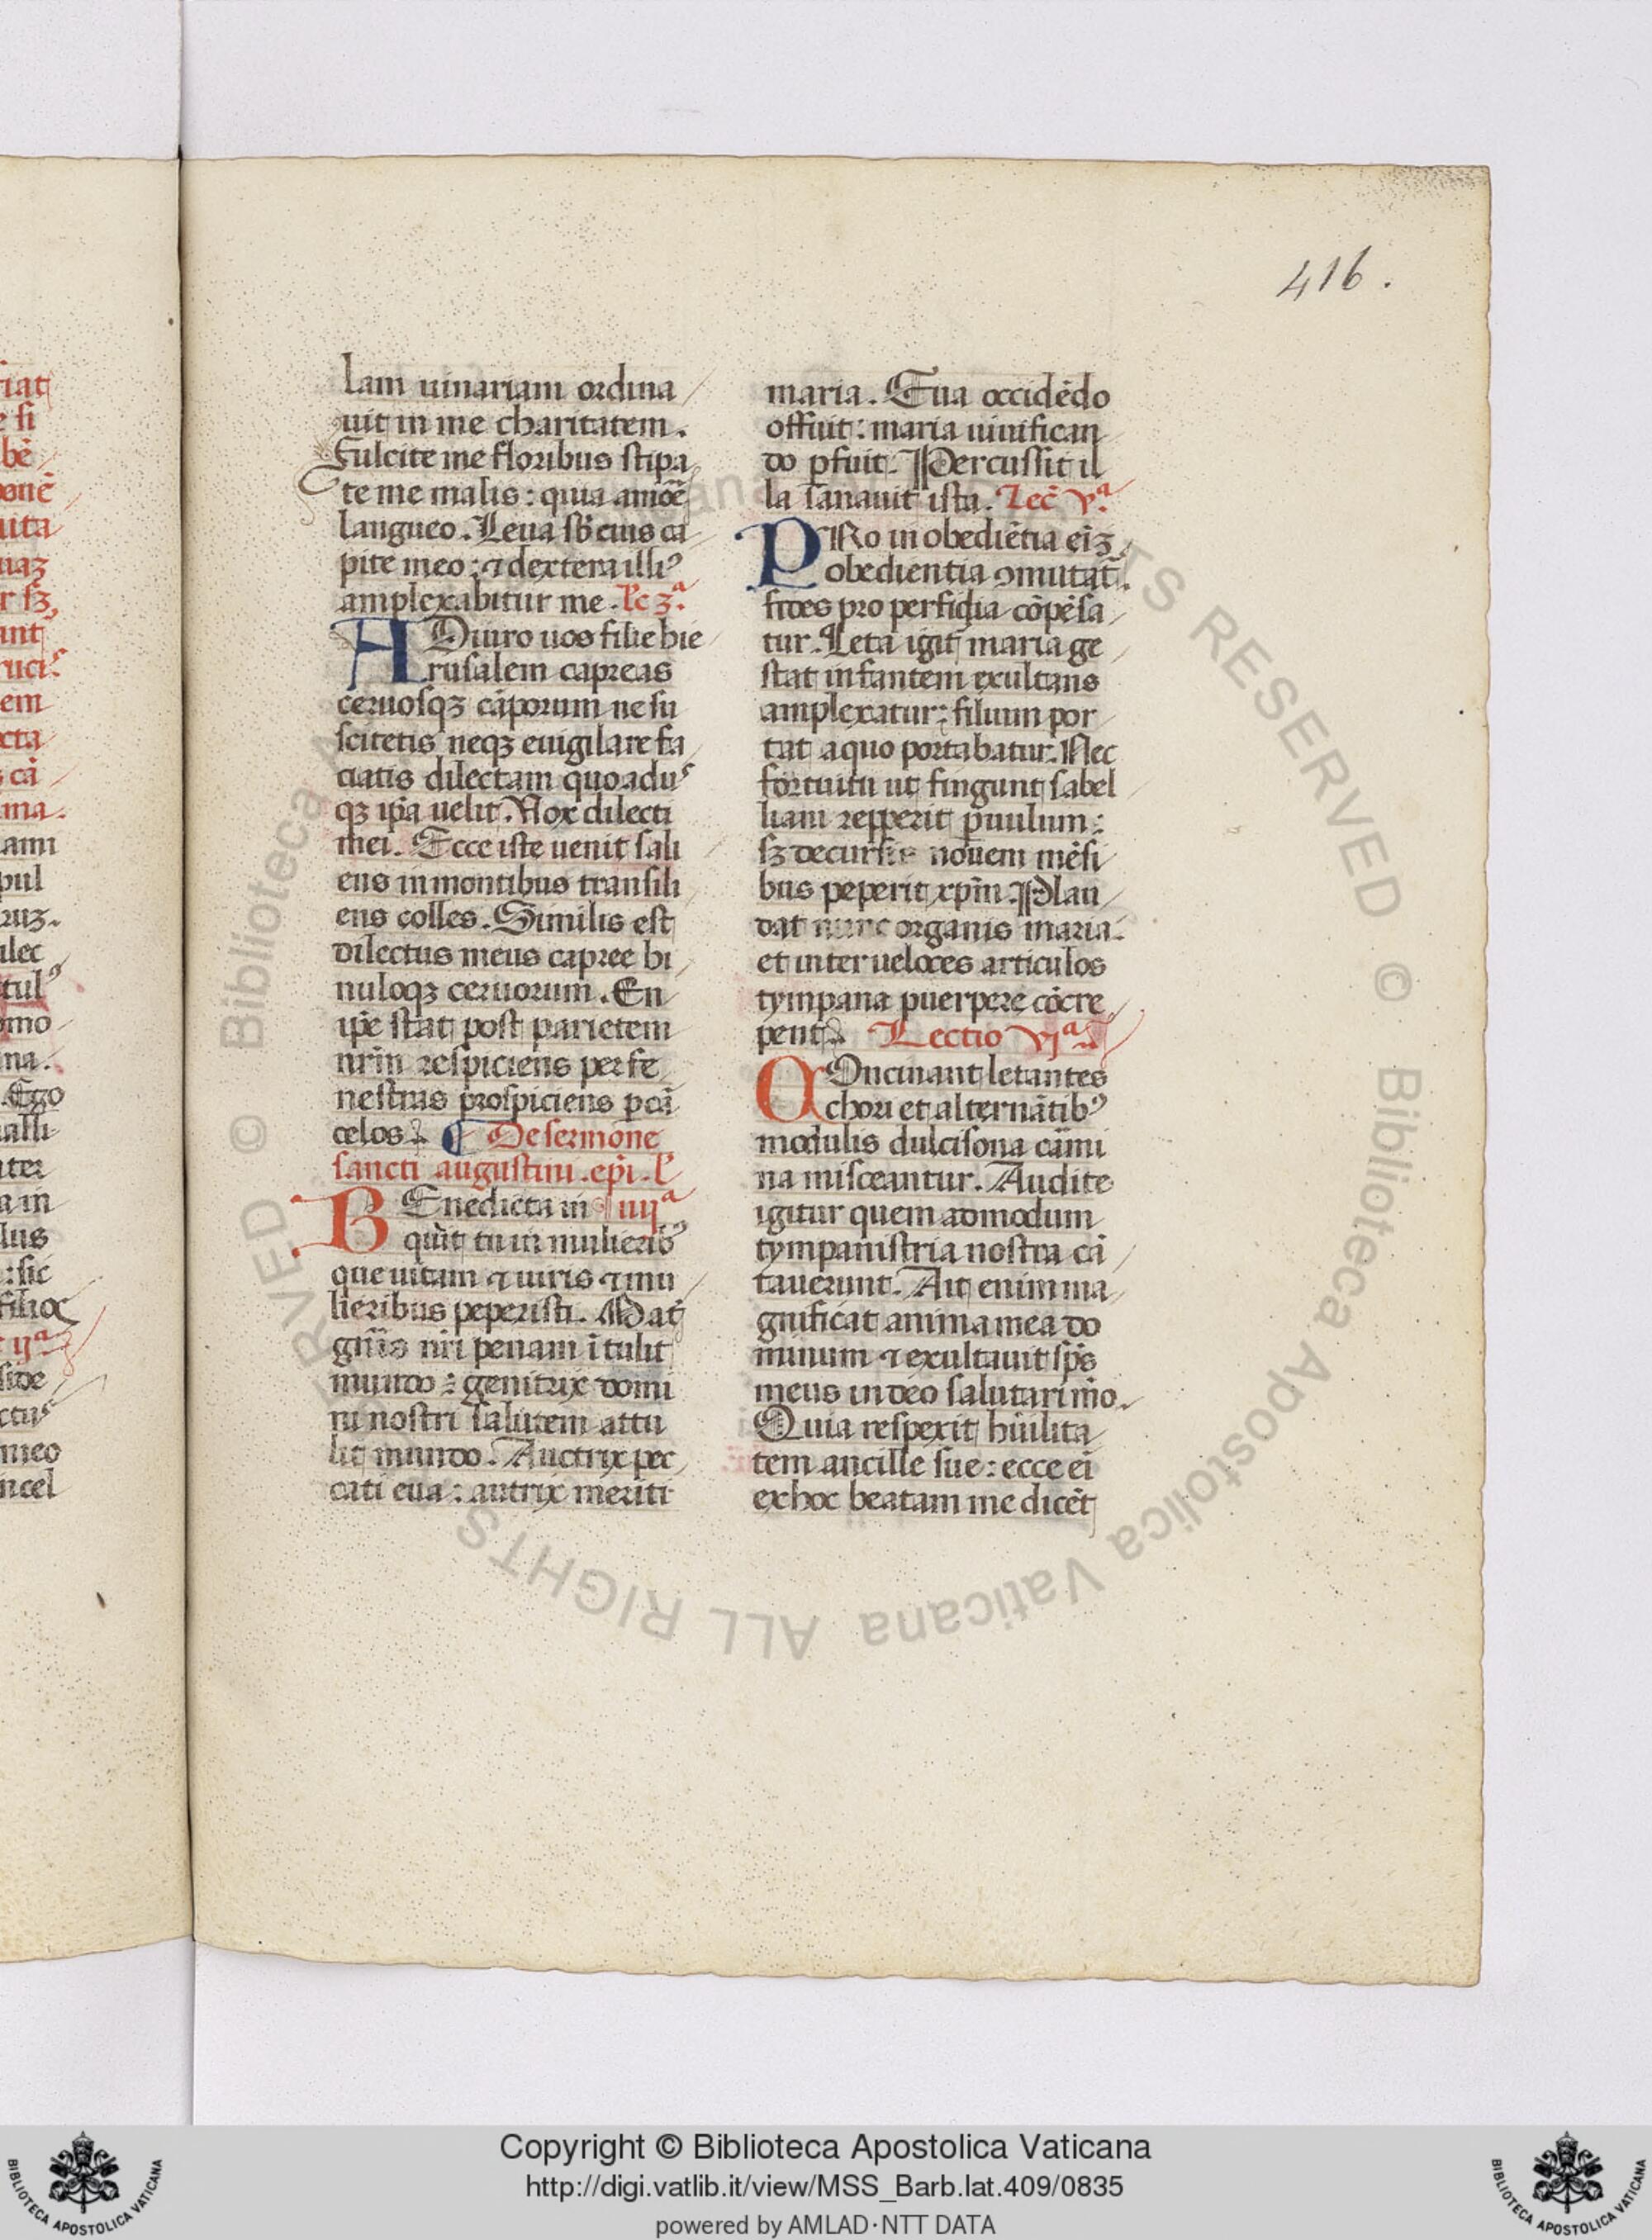 416.
lam uinariam ordina
uit in me charitatem.
Fulcite me floribus stipa
te me malis: quia amoẽ
langueo. Leua sb̃ eius ca
pite meo: ⁊ dextera illiꝰ
amplexabitur me. Lc̃ 3ª.
ADiuro uos filie hie
rusalem capreas
ceruosqꝫ cãporum ne su
scitetis neqꝫ euigilare fa
ciatis dilectam quoaduˢ
qꝫ ip̃a uelit. Vox dilecti
mei. Ecce iste uenit sali
ens in montibus transili
ens colles. Similis est
dilectus meus capree hi
nuloqꝫ ceruorum. En
ip̃e stat post parietem
nr̃m respiciens per fe
nestras prospiciens p cã
celos. De sermone
sancti augustini. ep̃i. L̃
BEnedicta in iiijª
quit tu in mulieribꝰ
que uitam ⁊ uiris ⁊ mu
lieribus peperisti. Mat̃
gñis nr̃i penam ĩtulit
mundo: genitrix domi
ni nostri salutem attu
lit mundo. Auctrix pec
cati eua: autrix meriti
maria. Eua occidẽdo
offuit: maria uiuifican
do ꝓfuit. Percussit il
la sanauit ista. Lec̃ vª.
PRo inobediẽtia eĩꝫ
obedientia ꝯmutat̃.
fides pro perfidia cõpẽsa
tur. Leta igit̃ maria ge
stat infantem exultans
amplexatur: filium por
tat a quo portabatur. Nec
fortuitu ut fingunt sabel
liani repperit ꝑuulum:
sꝫ decursis nouem mẽsi
bus peperit xp̃m. Plau
dat nunc organis maria.
et inter ueloces articulos
tympana puerpere cõcre
pent. Lectio vjª
COncinant letantes
chori et alternãtibꝰ
modulis dulcisona cãmi
na misceantur. Audite
igitur quem admodum
tympanistria nostra cã
tauerunt. Ait enim ma
gnificat anima mea do
minum ⁊ exultauit sp̃s
meus in deo salutari mõ.
Quia respexit hũilita
tem ancille sue: ecce eĩ
ex hoc beatam me dicẽt
Copyright © Biblioteca Apostolica Vaticana
http://digi.vatlib.it/view/MSS_Barb.lat.409/0835
powered by AMLAD·NTT DATA